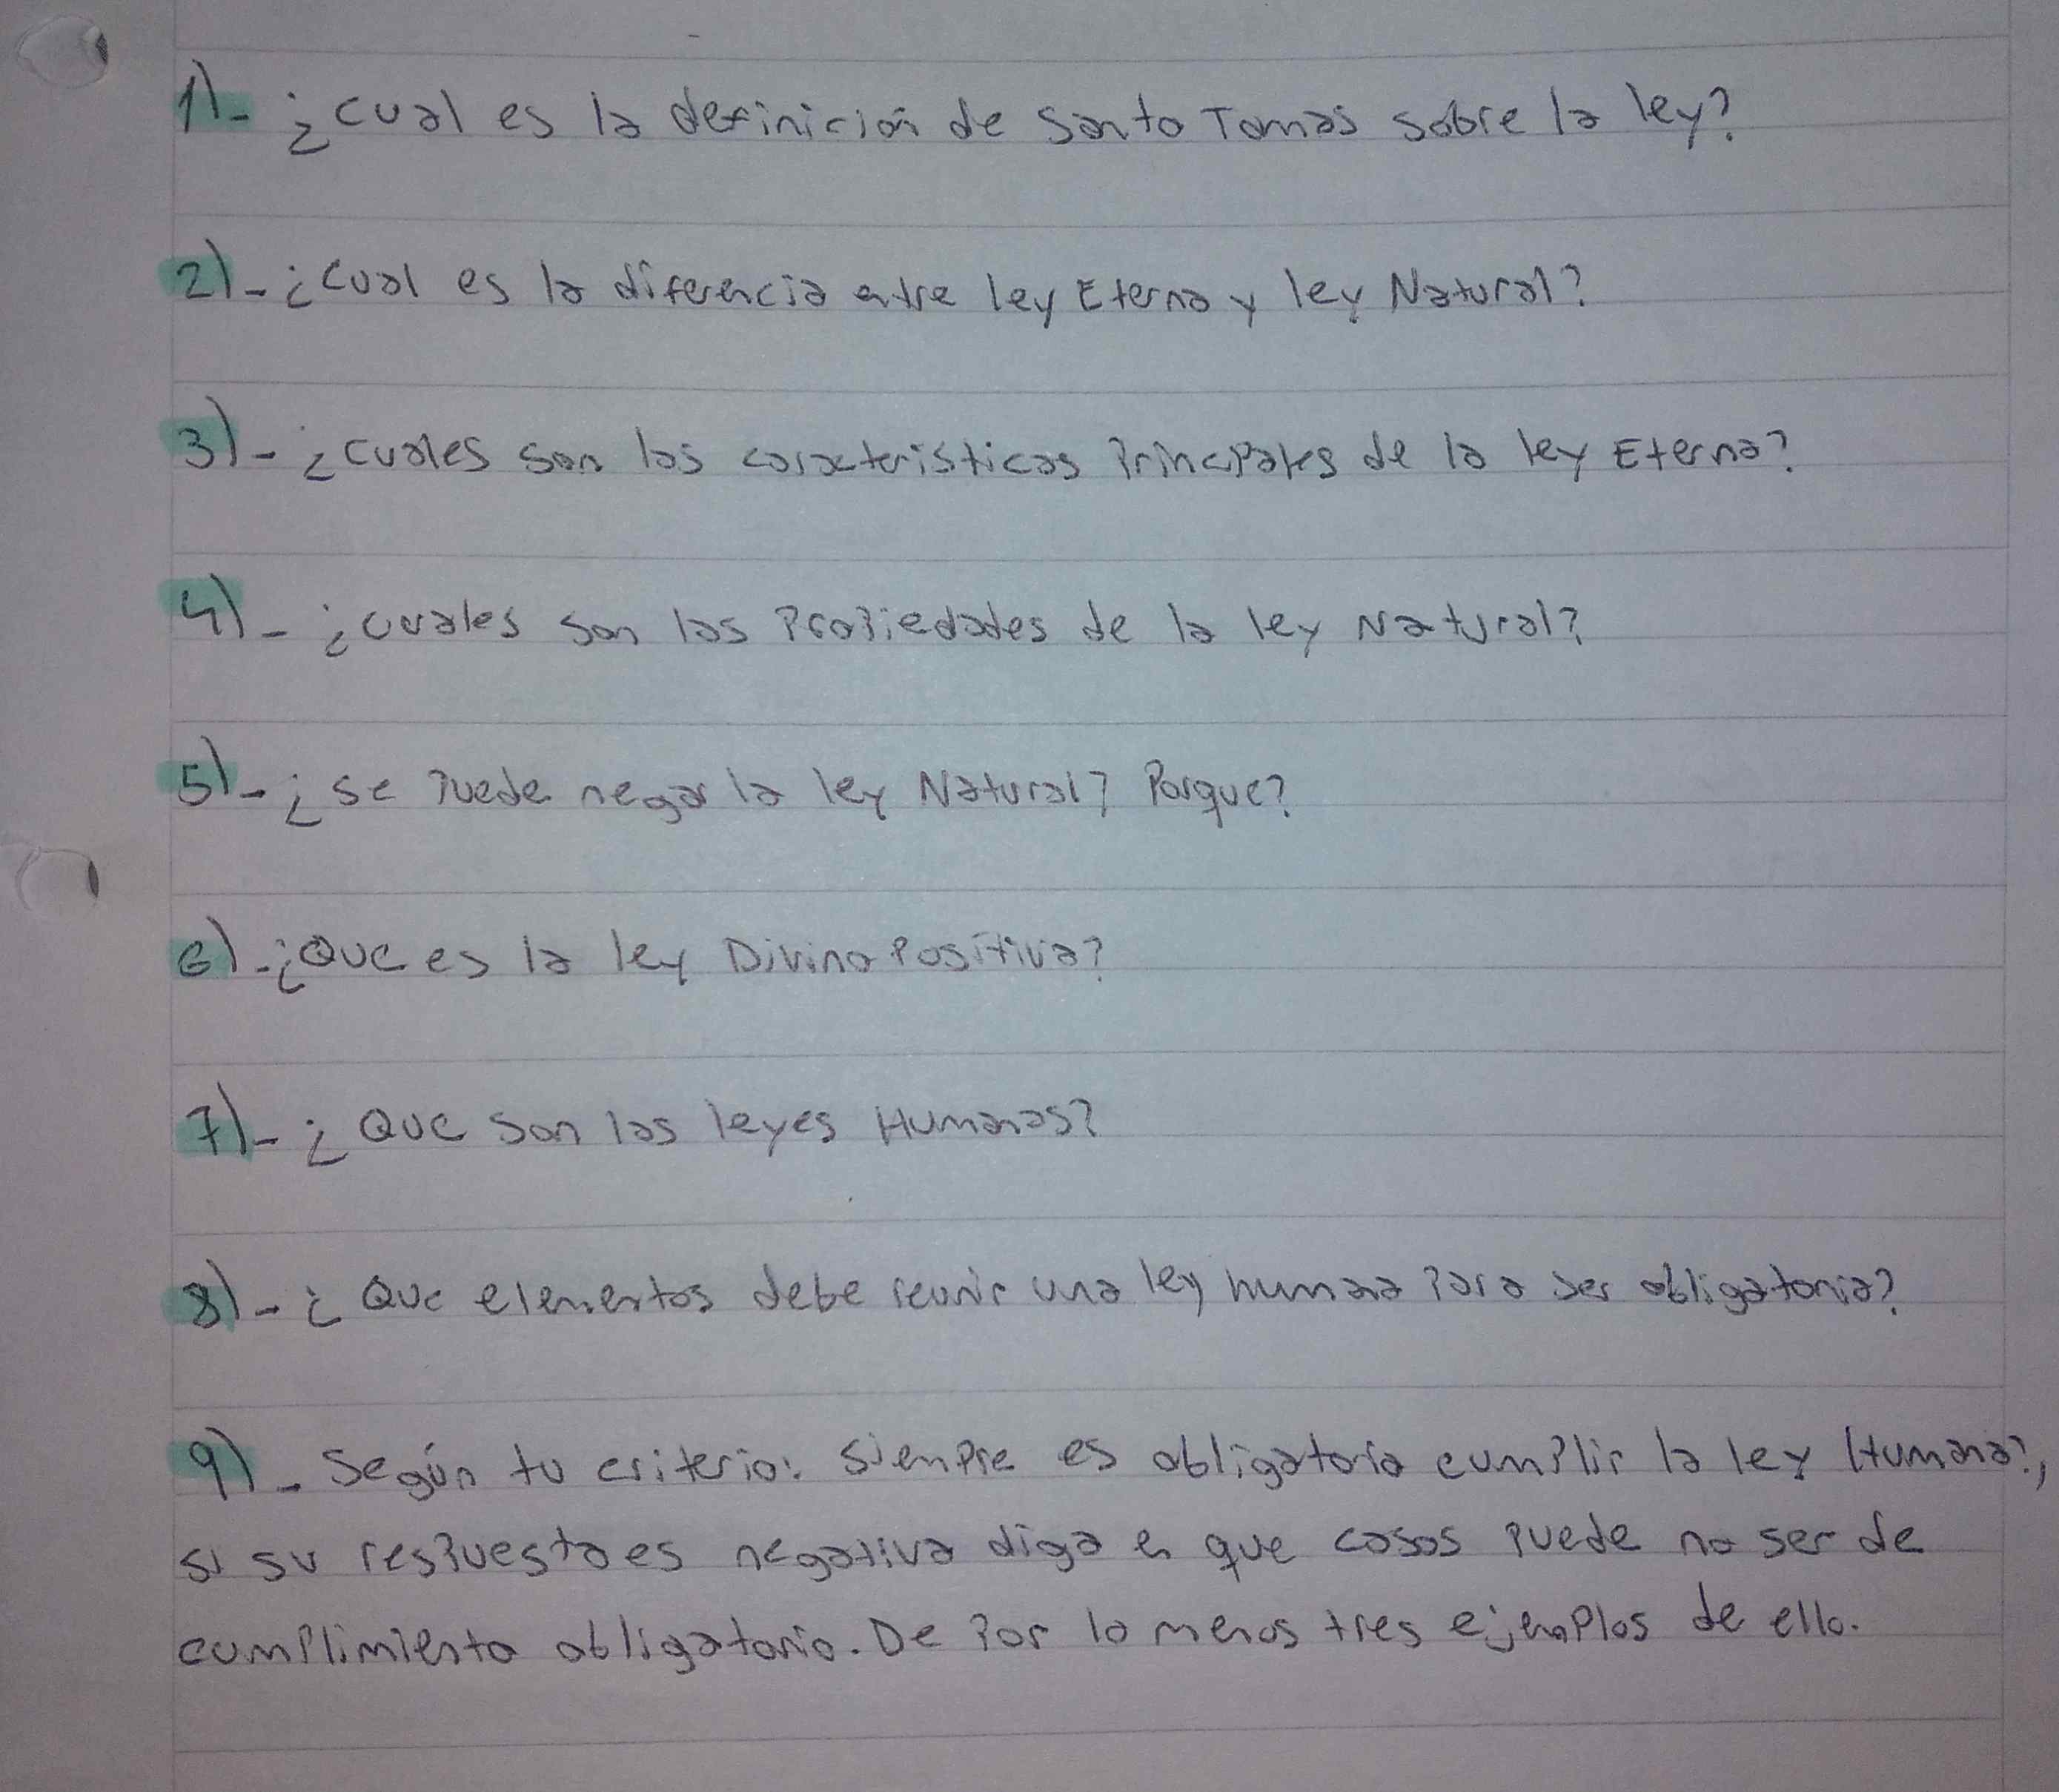 1)- ¿cual es la definición de santo Tomas sobre la ley?
2)- ¿Cual es la diferencia entre ley Eterna y ley Natural?
3)- ¿cuales son las caracteristicas Principales de la ley Eterna?
4)- ¿cuales son las Propiedades de la ley Natural?
5)- ¿se Puede negar la ley Natural? Porque?
6)- ¿Que es la ley Divino Positiva?
7)- ¿Que son las leyes Humanas?
8)- ¿Que elementos debe reunir una ley humana Para ser obligatoria?
9)- Según tu criterio: siempre es obligatorio cumplir la ley Humana?,
si su respuesta es negativa diga en que casos Puede no ser de
cumplimiento obligatorio. De Por lo menos tres ejemplos de ello.